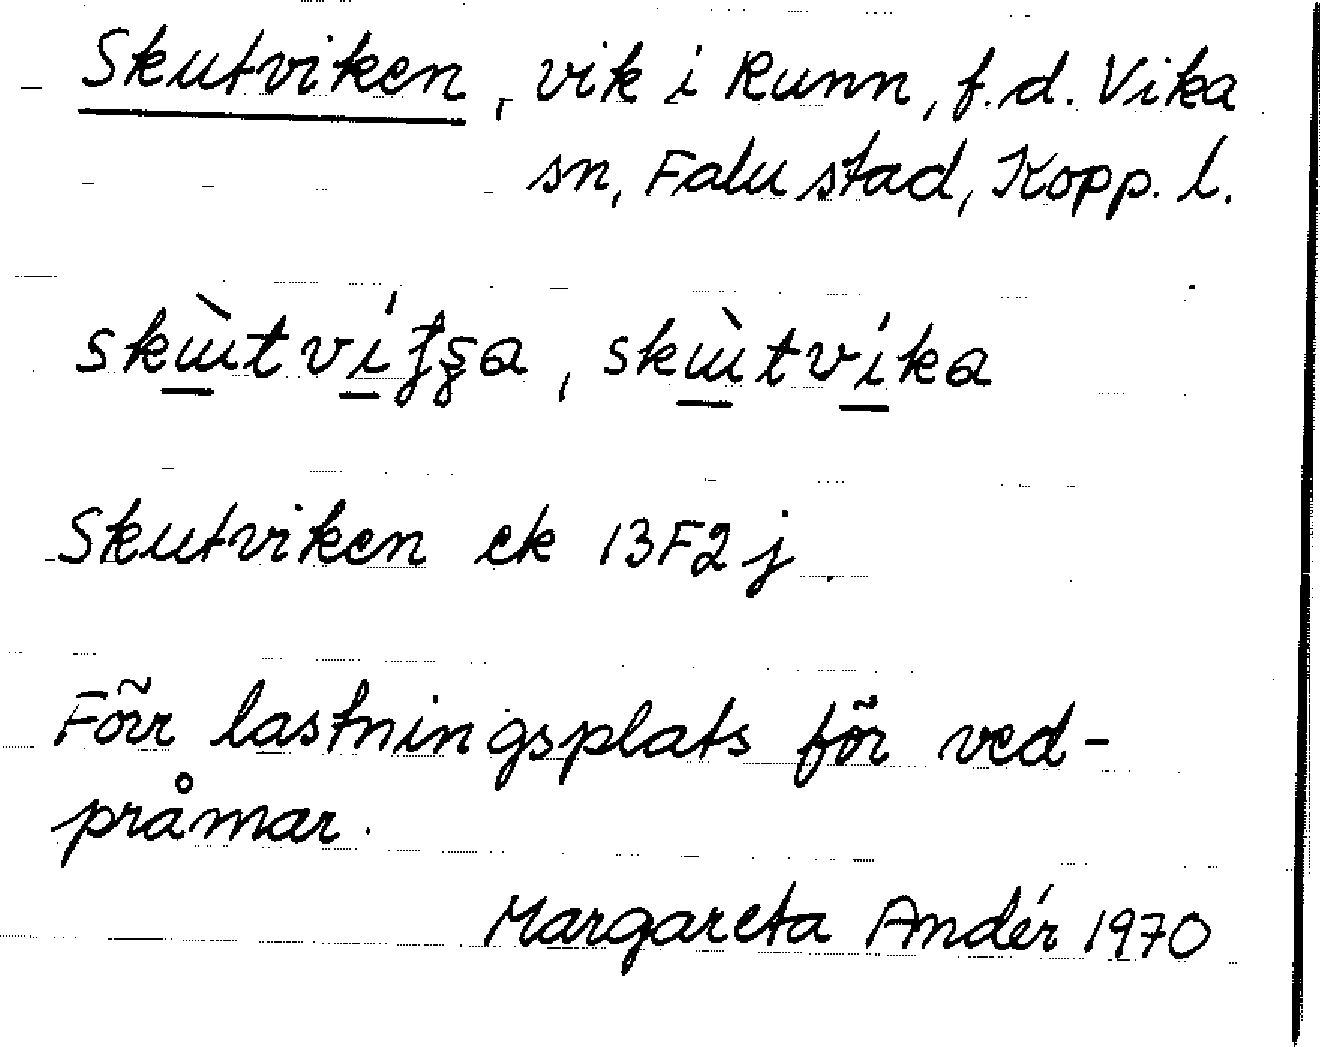 Skutviken, vik i Runn, f.d. Vika
sn, Falu stad, Kopp. l.
skɯ̀tvíka
Skutviken ek 13F2j
Förr lastningsplats för ved-
pråmar.
Margareta Andér 1970